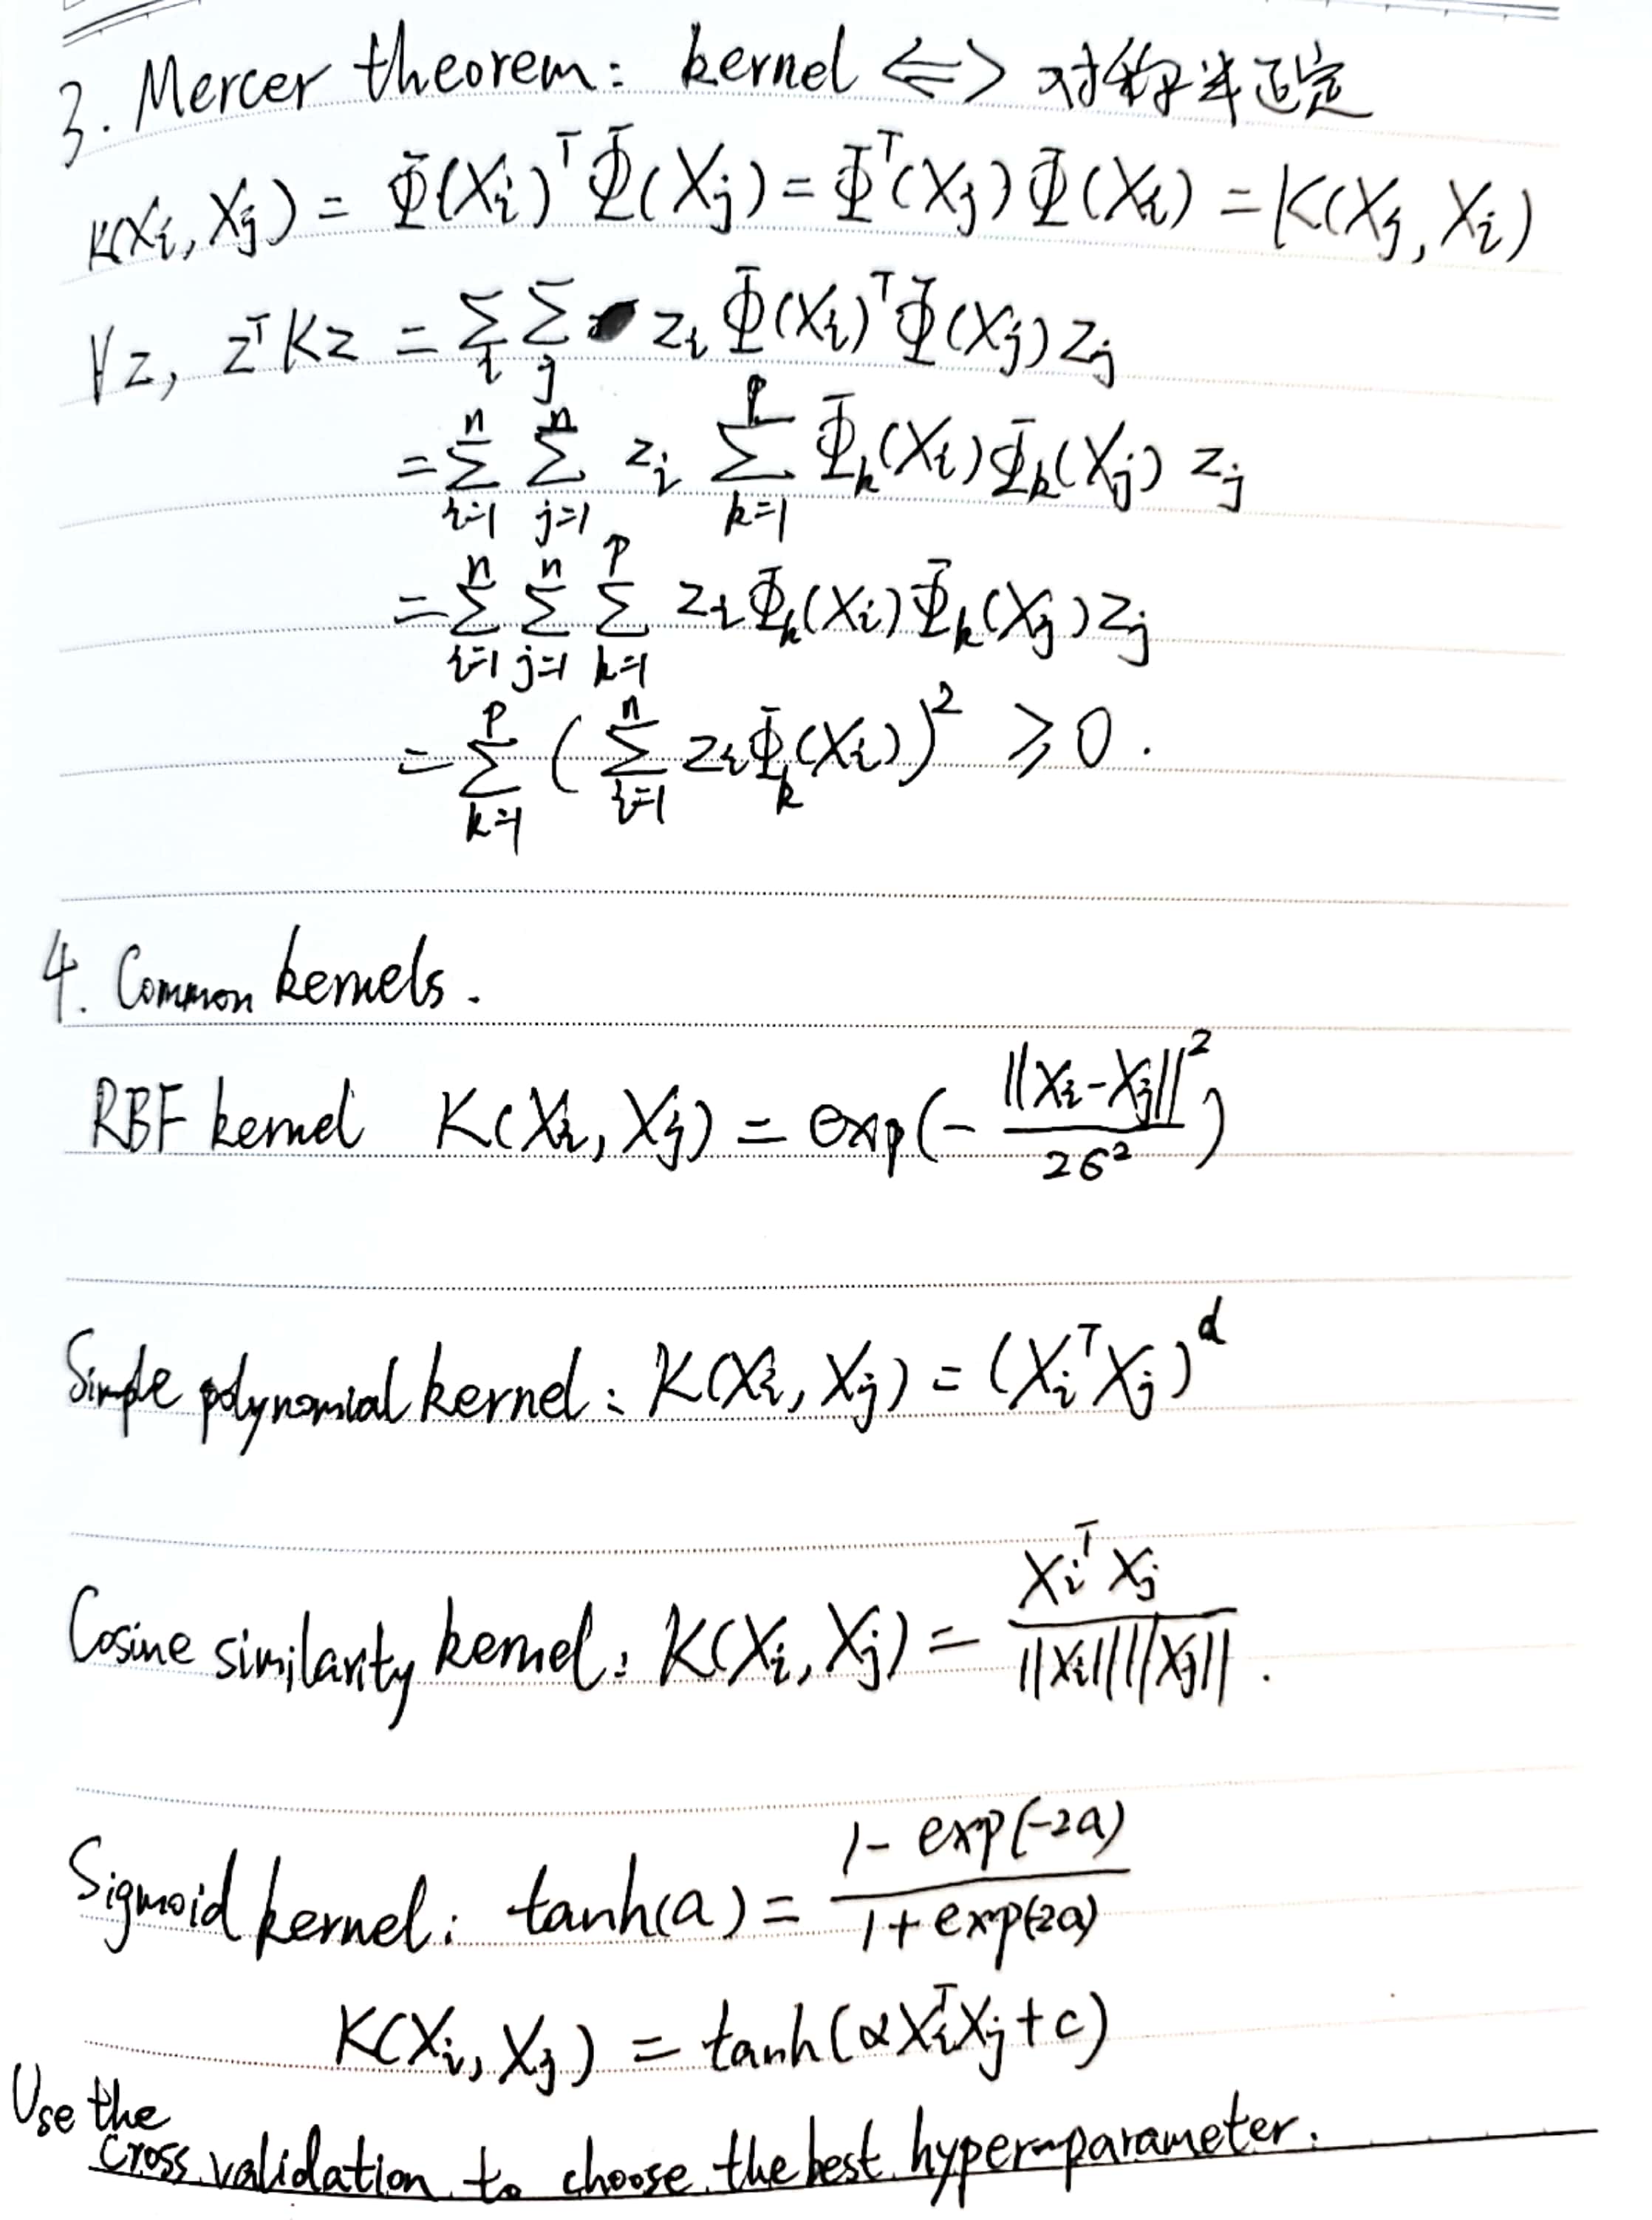 3. Mercer theorem: kernel ⟺ 对称半正定
K(Xi, Xj) = Φ(Xi)ᵀΦ(Xj) = Φᵀ(Xj)Φ(Xi) = K(Xj, Xi)
∀z, zᵀKz = Σ_i Σ_j zi Φ(Xi)ᵀΦ(Xj) zj
= Σ_{i=1}^n Σ_{j=1}^n zi Σ_{k=1}^p Φk(Xi)Φk(Xj) zj
= Σ_{i=1}^n Σ_{j=1}^n Σ_{k=1}^p zi Φk(Xi)Φk(Xj) zj
= Σ_{k=1}^p (Σ_{i=1}^n zi Φk(Xi))² ≥ 0.
4. Common kernels.
RBF kernel K(Xi, Xj) = exp(- ||Xi-Xj||² / 2σ²)
Simple polynomial kernel: K(Xi, Xj) = (XiᵀXj)^d
Cosine similarity kernel: K(Xi, Xj) = XiᵀXj / ||Xi|| ||Xj|| .
Sigmoid kernel: tanh(a) = 1 - exp(-2a) / 1 + exp(-2a)
K(Xi, Xj) = tanh(αXiᵀXj + c)
Use the
cross validation to choose the best hyper-parameter.